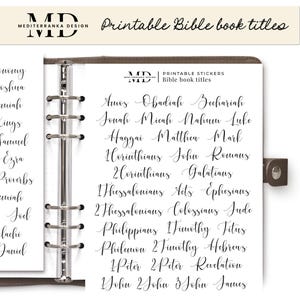 MD
MEDITERRANKA DESIGN
Printable Bible book titles
MD
PRINTABLE STICKERS
Bible book titles
Amos Obadiah Zechariah
Jonah Micah Nahum Luke
Haggai Matthew Mark
1Corinthians John Romans
2Corinthians Galatians
1Thessalonians Acts Ephesians
2Thessalonians Colossians Jude
Philippians 1Timothy Titus
Philemon 2Timothy Hebrews
1Peter 2Peter Revelation
1John 2John 3John James
Joshua
Kings
Samuel
Ezra
Proverbs
Joel
Malachi
Daniel